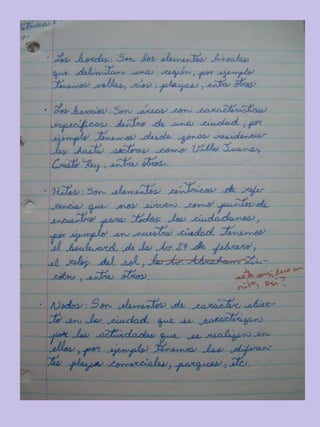 · Los bordes: Son los elementos lineales
que delimitan una región; por ejemplo
tenemos vallas, ríos, playas, entre otros.
· Los barrios: Son áreas con características
específicas dentro de una ciudad, por
ejemplo tenemos desde zonas residencia-
les hasta sectores como Villa Juana,
Cristo Rey, entre otros.
· Hitos: Son elementos céntricos de refe-
rencia que nos sirven como puntos de
encuentro para todos los ciudadanos,
por ejemplo en nuestra ciudad tenemos
el boulevard de la Av. 27 de febrero,
el reloj del sol, la Av. Abraham Lin-
coln, entre otros.
· Nodos: Son elementos de carácter abier-
to en la ciudad que se caracterizan
por las actividades que se realizan en
ellos, por ejemplo tenemos las diferen-
tes plazas comerciales, parques, etc.